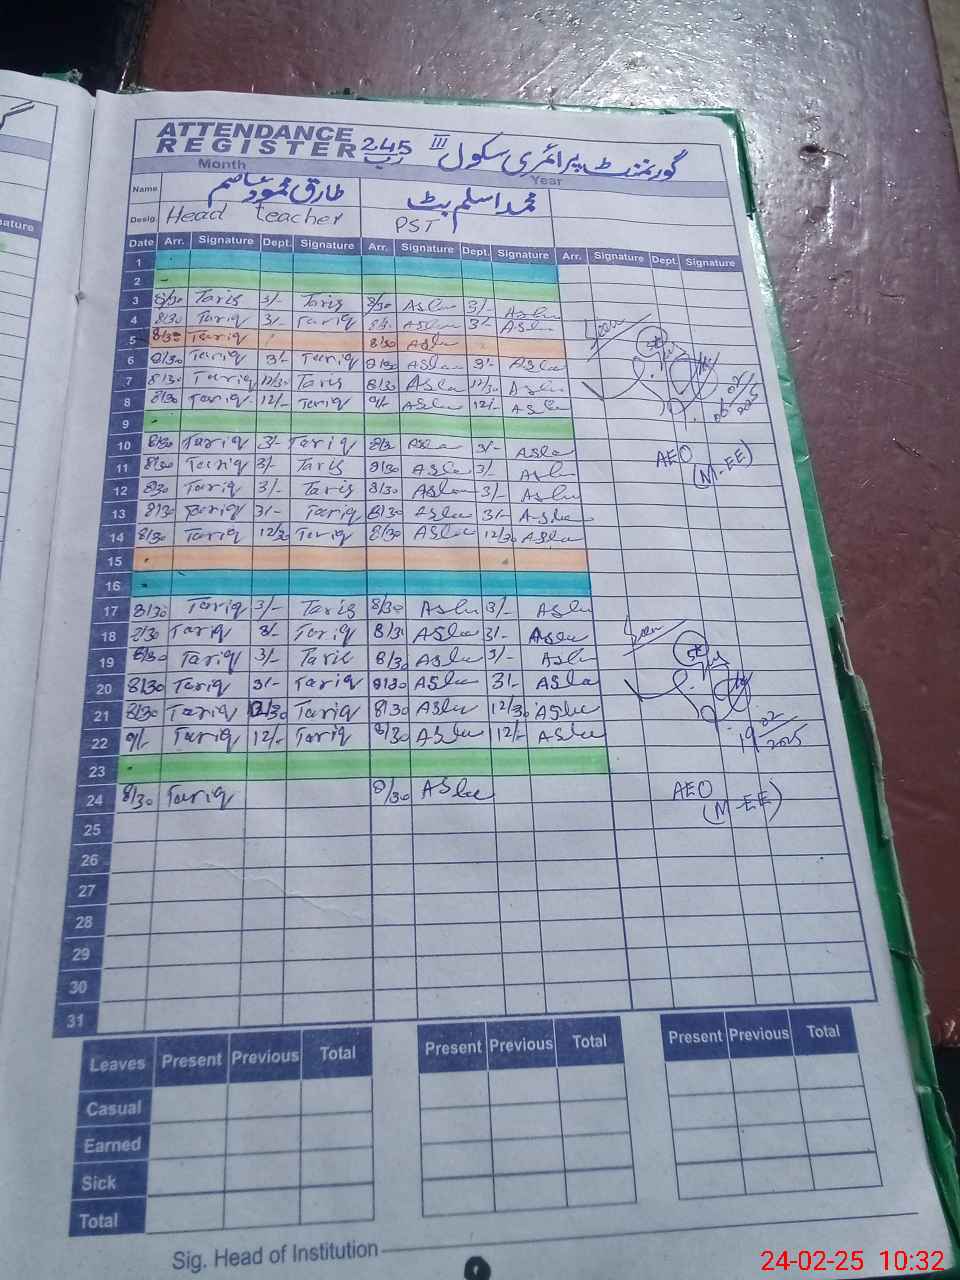 ATTENDANCE REGISTER 245 رب III گورنمنٹ پرائمری سکول
Month Year
Name طارق محمود عاصم محمد اسلم بٹ
Desig Head teacher PST
Date Arr. Signature Dept. Signature Arr. Signature Dept. Signature Arr. Signature Dept. Signature
1
2
3 8/30 Tariq 3/- Tariq 8/30 Aslam 3/- Aslam
4 8/30 Tariq 3/- Tariq 8/30 Aslam 3/- Aslam
5 8/30 Tariq 8/30 Aslam
6 8/30 Tariq 3/- Tariq 8/30 Aslam 3/- Aslam
7 8/30 Tariq 12/30 Tariq 8/30 Aslam 12/30 Aslam
8 8/30 Tariq 12/- Tariq 9/- Aslam 12/- Aslam
06/02/2025
9
10 8/30 Tariq 3/- Tariq 8/30 Aslam 3/- Aslam
AEO
11 8/30 Tariq 3/- Tariq 8/30 Aslam 3/- Aslam
(M-EE)
12 8/30 Tariq 3/- Tariq 8/30 Aslam 3/- Aslam
13 8/30 Tariq 3/- Tariq 8/30 Aslam 3/- Aslam
14 8/30 Tariq 12/30 Tariq 8/30 Aslam 12/30 Aslam
15
16
17 8/30 Tariq 3/- Tariq 8/30 Aslam 3/- Aslam
18 8/30 Tariq 3/- Tariq 8/30 Aslam 3/- Aslam
Seen
19 8/30 Tariq 3/- Tariq 8/30 Aslam 3/- Aslam
20 8/30 Tariq 3/- Tariq 8/30 Aslam 3/- Aslam
21 8/30 Tariq 12/30 Tariq 8/30 Aslam 12/30 Aslam
22 9/- Tariq 12/- Tariq 8/30 Aslam 12/- Aslam
19/02/2025
23
24 8/30 Tariq 8/30 Aslam
AEO
(M-EE)
25
26
27
28
29
30
31
Leaves Present Previous Total Present Previous Total Present Previous Total
Casual
Earned
Sick
Total
Sig. Head of Institution
24-02-25 10:32